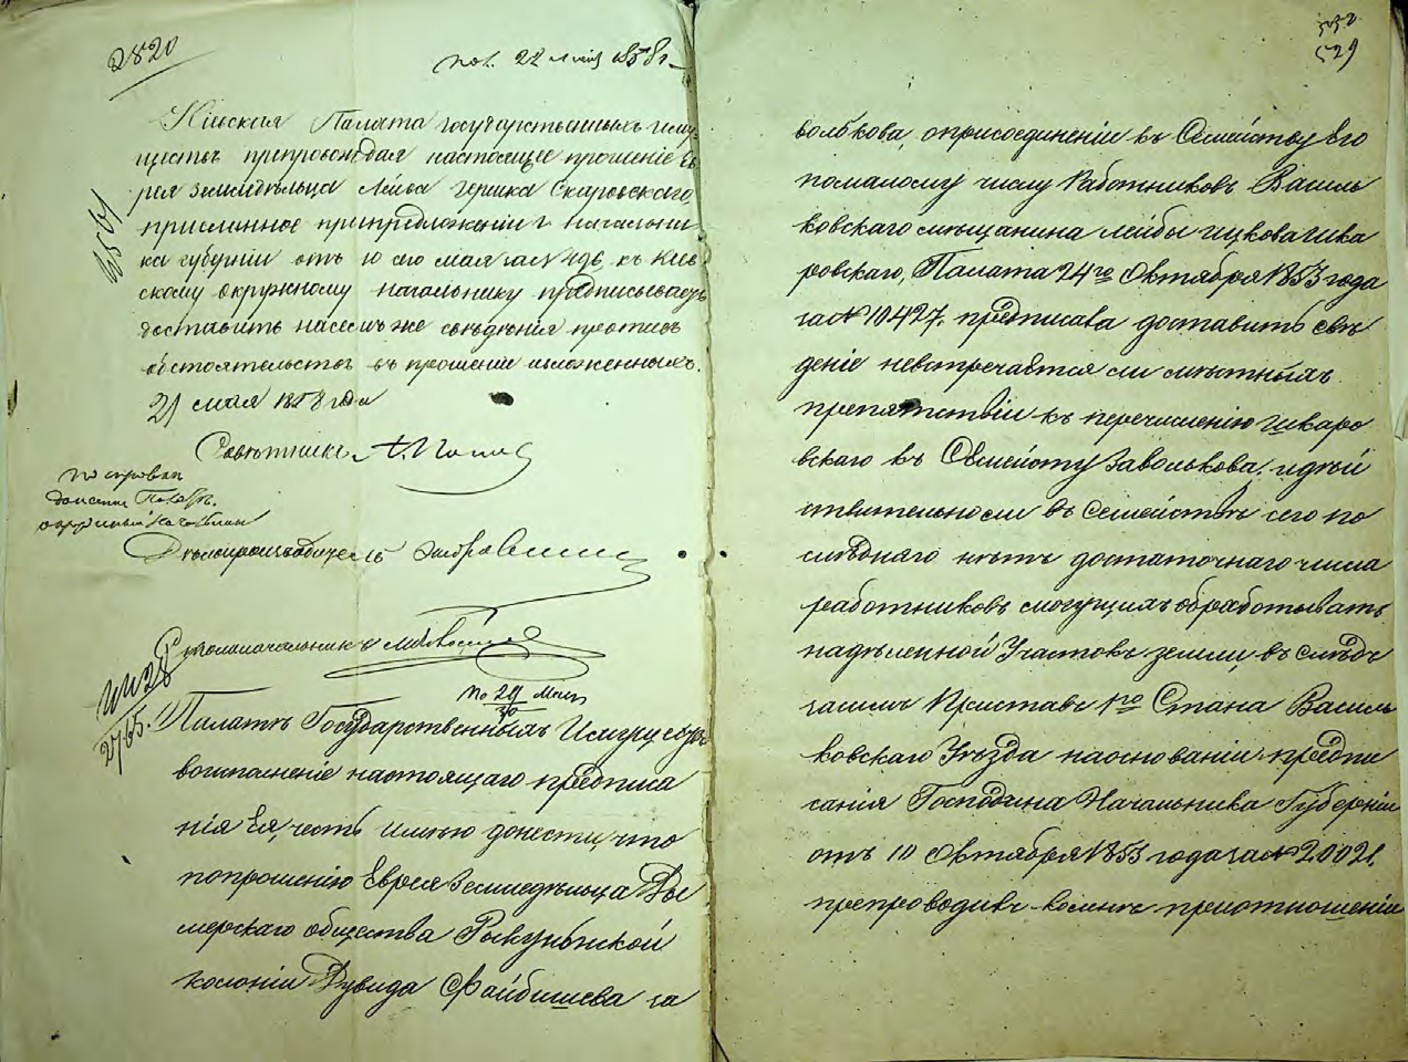 2820
пол. 22 мая 1858 г.
Кіевская Палата Государственныхъ Иму
ществъ препровождая настоящее прошеніе Ев
рея земледѣльца Лейба Гершка Скаровскаго,
присланное припредложеніи г. Начальни
ка губерніи отъ 10 сего мая за № 496, къ Кіев
скому окружному начальнику предписываетъ
доставить насемъ же свѣдѣнія противъ
обстоятельствъ въ прошеніи изложенныхъ.
21 мая 1858 года
Совѣтникъ
по справки
окружный Начальникъ
Дѣлопроизводитель
Столоначальникъ
по 29 Мая
30
2765.
Палатѣ Государственныхъ Имуществъ
воисполненіе настоящаго предписа
нія Ея, честь имѣю донести, что
попрошенію Еврея Земледѣльца Ды
мерскаго общества Рыкуньской
колоніи Дувида Файбишева за
532
529
волькова, оприсоединеніи къ Семейству Его
помалому числу Работниковъ Василь
ковскаго мѣщанина Лейбы Ицкова Шка
ровскаго, Палата 24го Октября 1853 года
за № 10427, предписала доставить свѣ
деніе невстречается ли мѣстныхъ
препятствіи къ перечисленію Шкаро
вскаго къ Семейству Заволькова, идѣй
ствительноли въ Семействѣ сего по
слѣдняго нѣтъ достаточнаго числа
работниковъ могущихъ обработывать
надѣленной Участокъ земли, въ слѣдъ
засимъ Приставъ 1го Стана Василь
ковскаго Уѣзда наоснованіи предпи
санія Господина Начальника Губерніи
отъ 10 Октября 1853 года за № 20021,
препроводивъ комнѣ приотношеніи